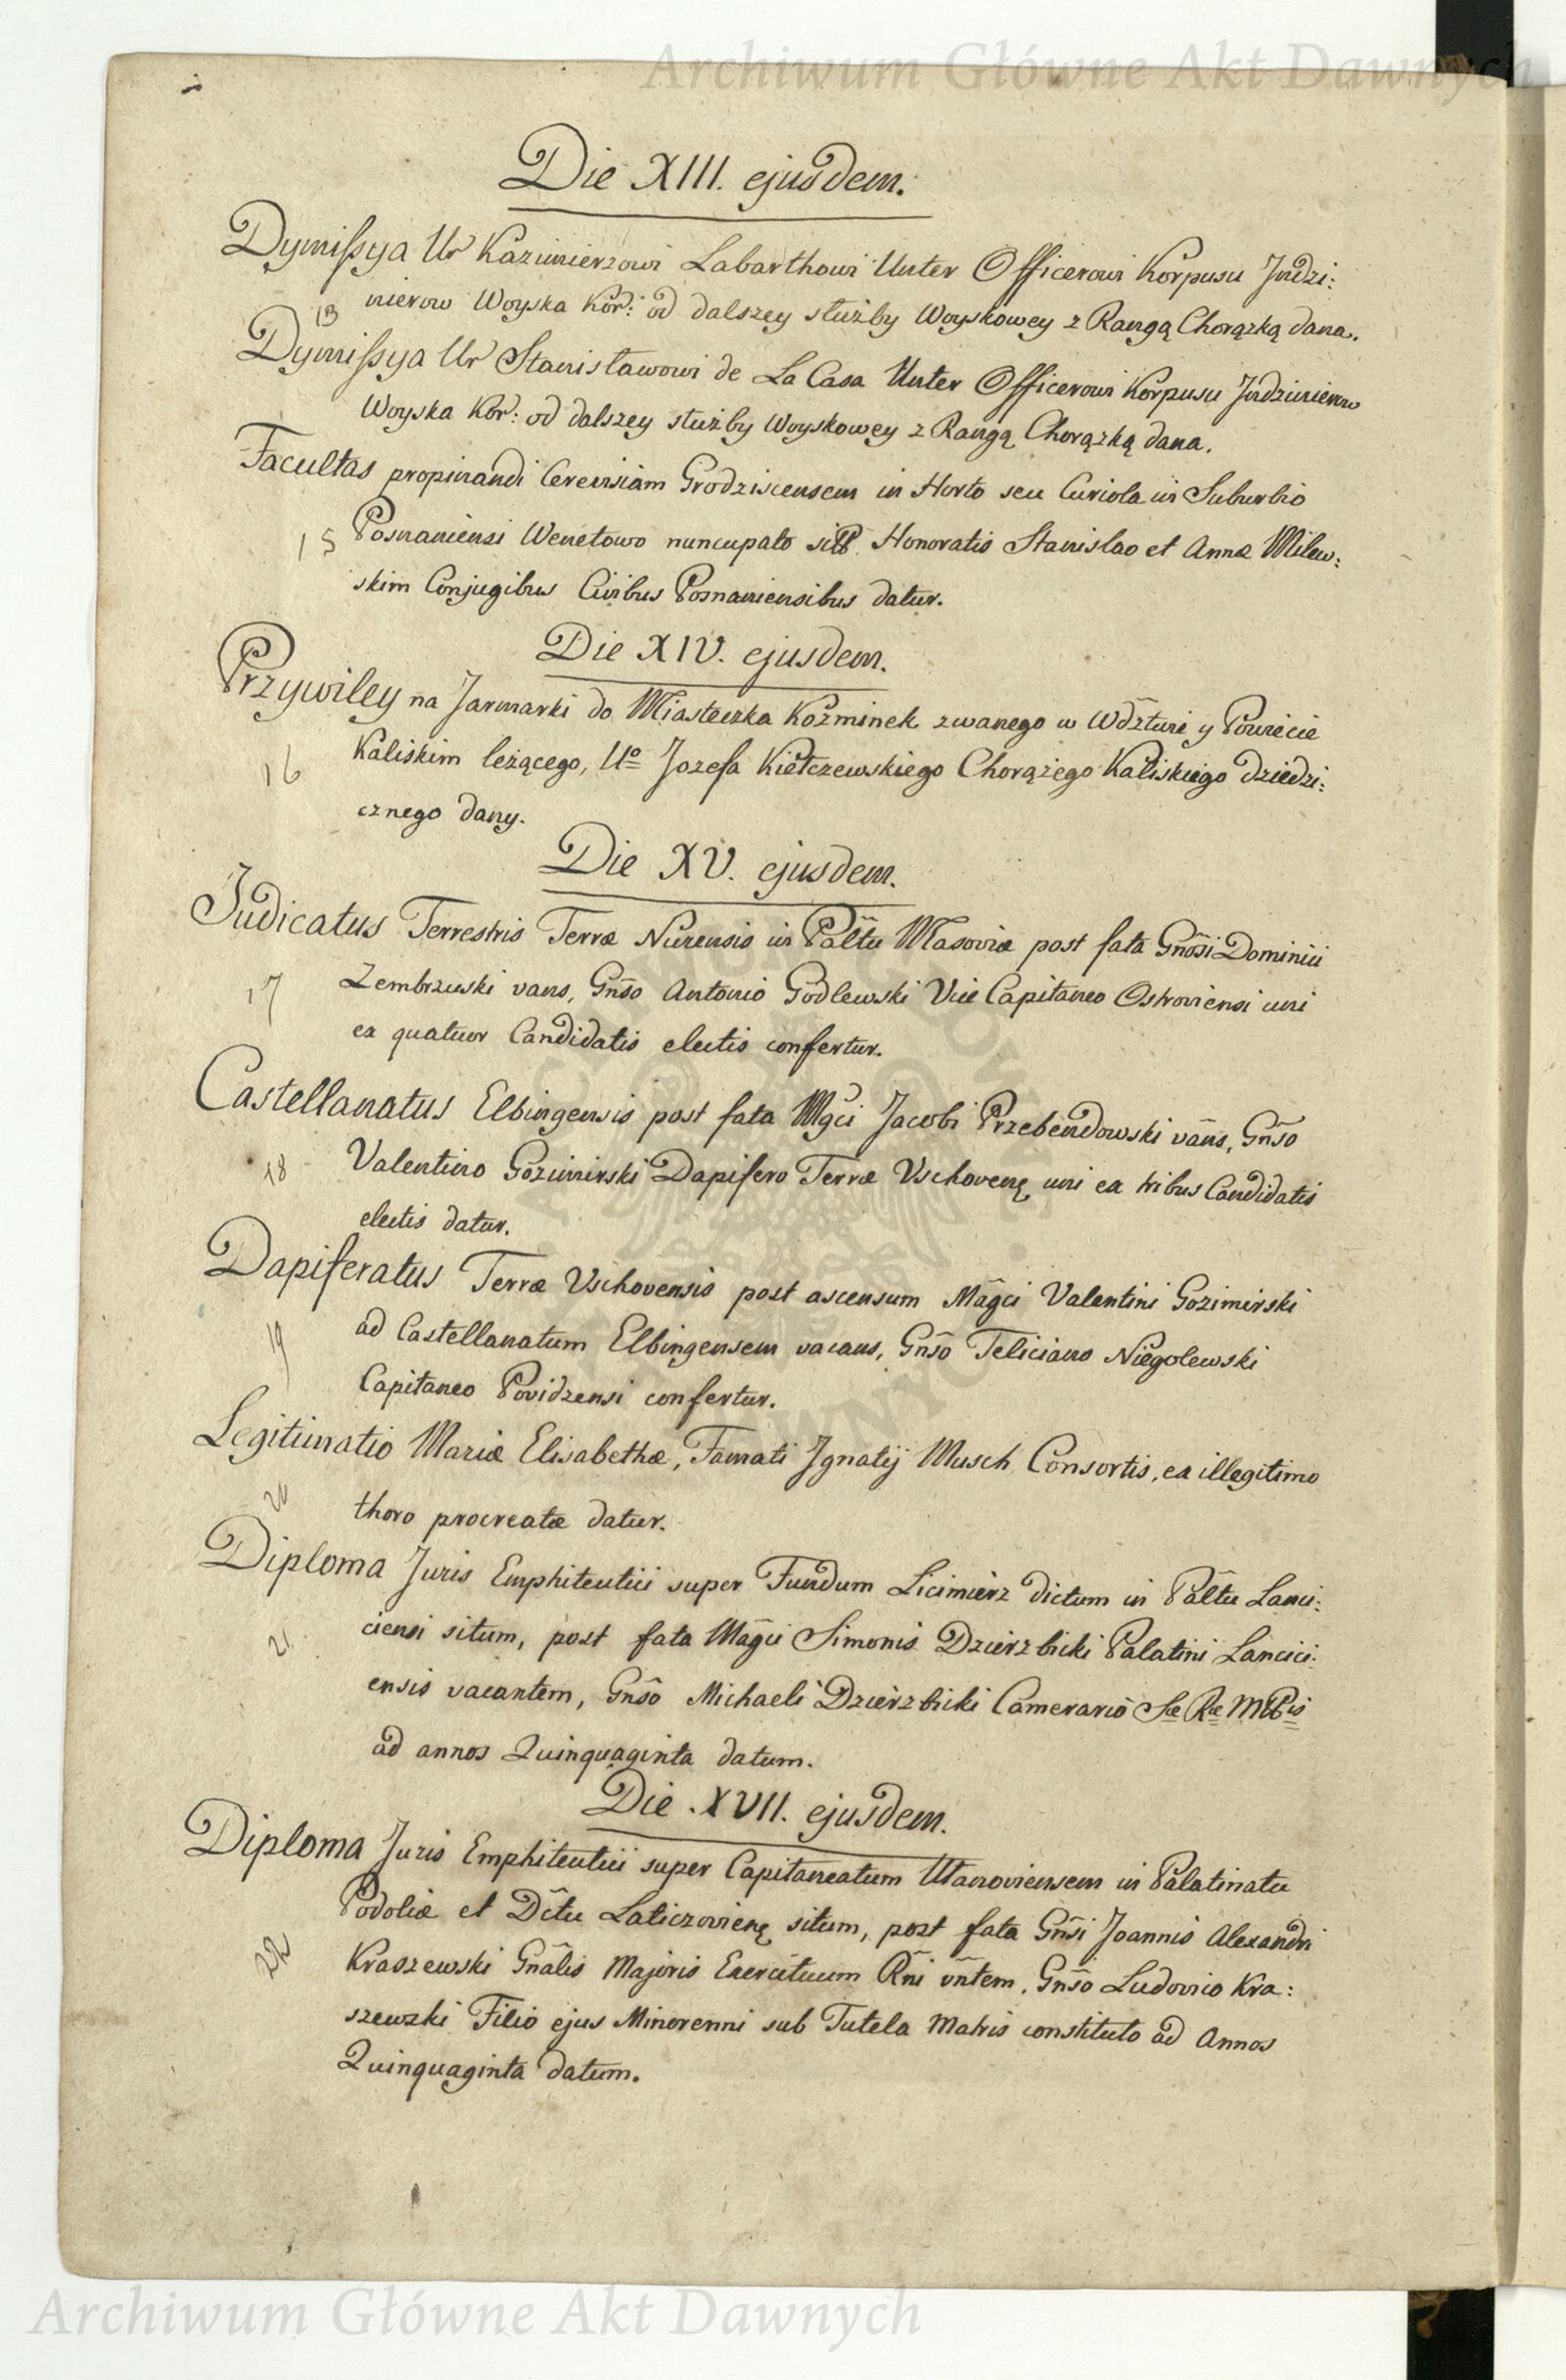 Archiwum Główne Akt Dawnych
Die XIII. ejusdem.
Dymißya Ur Kazimierzowi Labarthowi Unter Officerowi Korpusu Jndzi:
13 nierow Woyska Kor: od dalszey służby Woyskowey z Rangą Chorążką dana.
Dymißya Ur Stanisławowi de La Casa Unter Officerowi Korpusu Jndzinierow
Woyska Kor: od dalszey służby Woyskowey z Rangą Chorążką dana.
Facultas propinandi Cerevisiam Grodziscensem in Horto seu Curiola in Suburbio
15 Posnaniensi Wenetowo nuncupato Honoratis Stanislao et Annæ Milew:
skim Conjugibus Civibus Posnaniensibus datur.
Die XIV. ejusdem.
Przywiley na Jarmarki do Miasteczka Kozminek zwanego w Wdztwie y Powiecie
16 Kaliskim leżącego, Uo Jozefa Kiełczewskiego Chorążego Kaliskiego dziedzi:
cznego dany.
Die XV. ejusdem.
Judicatus Terrestris Terræ Nurensis in Pałtu Masoviæ post fata Gnosi Dominici
17 Zembrzuski vans, Gnso Antonio Godlewski Vice Capitaneo Ostroviensi uni
ex quatuor Candidatis electis confertur.
Castellanatus Elbingensis post fata Mgci Jacobi Przebendowski vans, Gnso
18 Valentino Gozimirski Dapifero Terræ Vschovenę uni ex tribus Candidatis
electis datur.
Dapiferatus Terræ Vschovensis post ascensum Magci Valentini Gozimirski
19 ad Castellanatum Elbingensem vacans, Gnso Feliciano Niegolewski
Capitaneo Povidzensi confertur.
Legitimatio Mariæ Elisabethæ, Famati Jgnatij Musch Consortis, ex illegitimo
20 thoro procreatæ datur.
Diploma Juris Emphiteutici super Fundum Licimierz dictum in Paltu Lanci:
21. ciensi situm, post fata Magci Simonis Dzierzbicki Palatini Lancici:
ensis vacantem, Gnso Michaeli Dzierzbicki Camerario Sæ Ræ
ad annos Quinquaginta datum.
Die XVII. ejusdem.
Diploma Juris Emphiteutici super Capitaneatum Ułanoviensem in Palatinatu
Podoliæ et Dctu Laticzovienę situm, post fata Gnsi Joannis Alexandri
22 Kraszewski Gnalis Majoris Exercituum Rni vntem, Gnso Ludovico Kra:
szewski Filio ejus Minorenni sub Tutela Matris constituto ad Annos
Quinquaginta datum.
Archiwum Główne Akt Dawnych